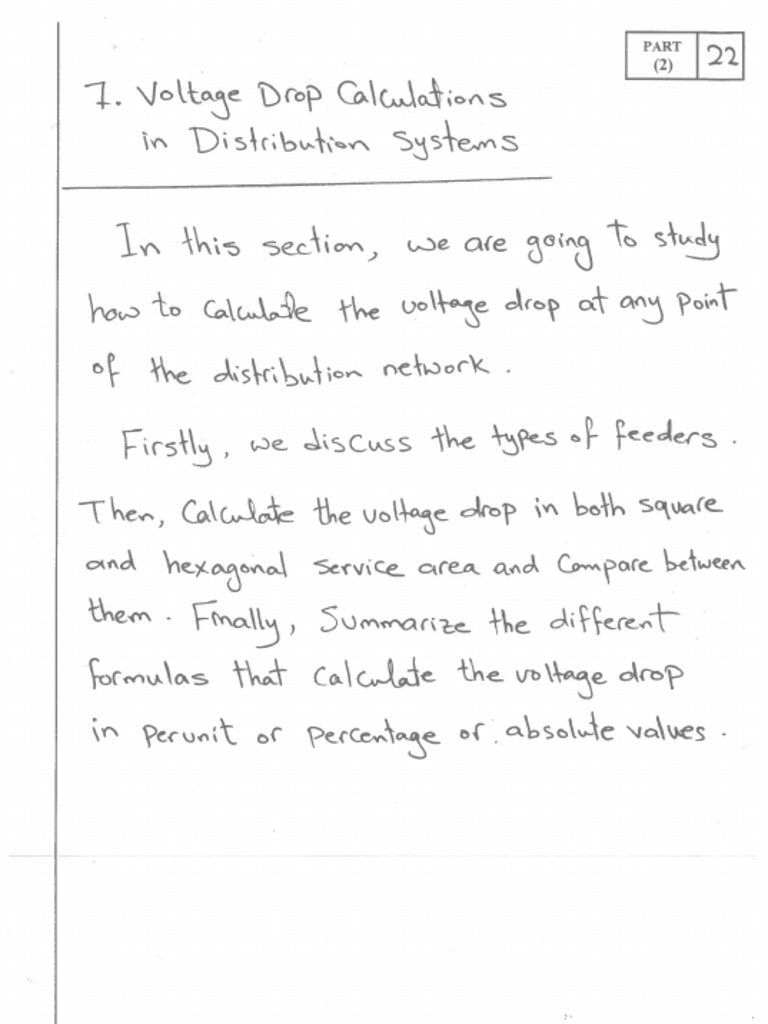 PART
(2)
22
7. Voltage Drop Calculations
in Distribution Systems
In this section, we are going to study
how to calculate the voltage drop at any point
of the distribution network.
Firstly, we discuss the types of feeders.
Then, Calculate the voltage drop in both square
and hexagonal service area and Compare between
them. Finally, Summarize the different
formulas that calculate the voltage drop
in perunit or percentage or absolute values.